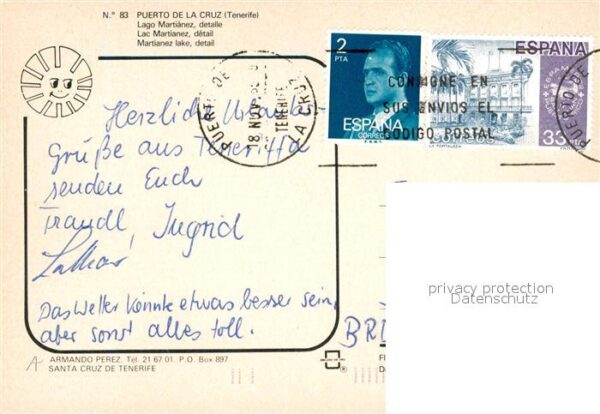 N.º 83 PUERTO DE LA CRUZ (Tenerife)
Lago Martiánez, detalle
Lac Martianez, détail
Martianez lake, detail
Herzliche Urlaubs-
Grüße aus Teneriffa
senden Euch
Traudl, Ingrid
Das Wetter könnte etwas besser sein,
aber sonst alles toll.
BRD
PUERTO DE LA CRUZ
18 NOV
TENERIFE
2
PTA
ESPAÑA
CORREOS
CONSIGNE EN
SUS ENVIOS EL
CODIGO POSTAL
ESPAÑA
CORREOS
33
LA FORTALEZA
PUERTO DE
privacy protection
Datenschutz
ARMANDO PEREZ. Tel. 21 67 01. P.O. Box 897
SANTA CRUZ DE TENERIFE